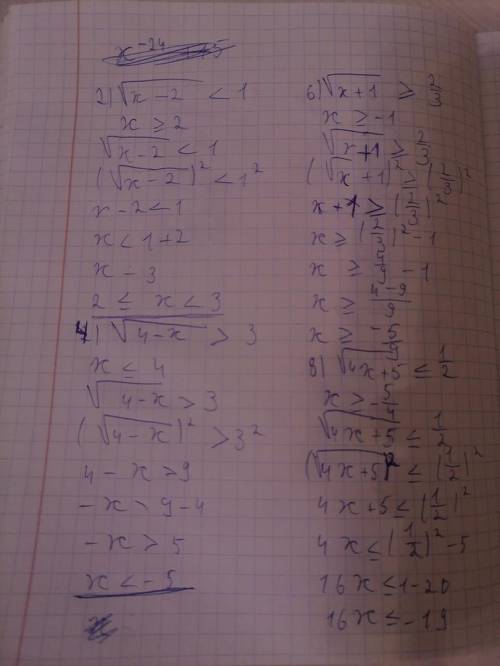 2) √(x-2) < 1
x ≥ 2
√(x-2) < 1
(√(x-2))² < 1²
x-2 < 1
x < 1+2
x - 3
2 ≤ x < 3
4) √(4-x) > 3
x ≤ 4
√(4-x) > 3
(√(4-x))² > 3²
4 - x > 9
-x > 9-4
-x > 5
x < -5
6) √(x+1) ≥ 2/3
x ≥ -1
√(x+1) ≥ 2/3
(√(x+1))² ≥ (2/3)²
x+1 ≥ (2/3)²
x ≥ (2/3)² - 1
x ≥ 4/9 - 1
x ≥ (4-9)/9
x ≥ -5/9
8) √(4x+5) ≤ 1/2
x ≥ -5/4
√(4x+5) ≤ 1/2
(√(4x+5))² ≤ (1/2)²
4x+5 ≤ (1/2)²
4x ≤ (1/2)² - 5
16x ≤ 1-20
16x ≤ -19